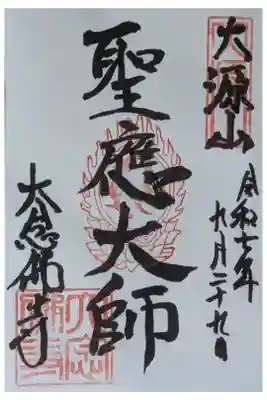 大源山
令和七年
九月二十九日
聖應大師
大念佛寺